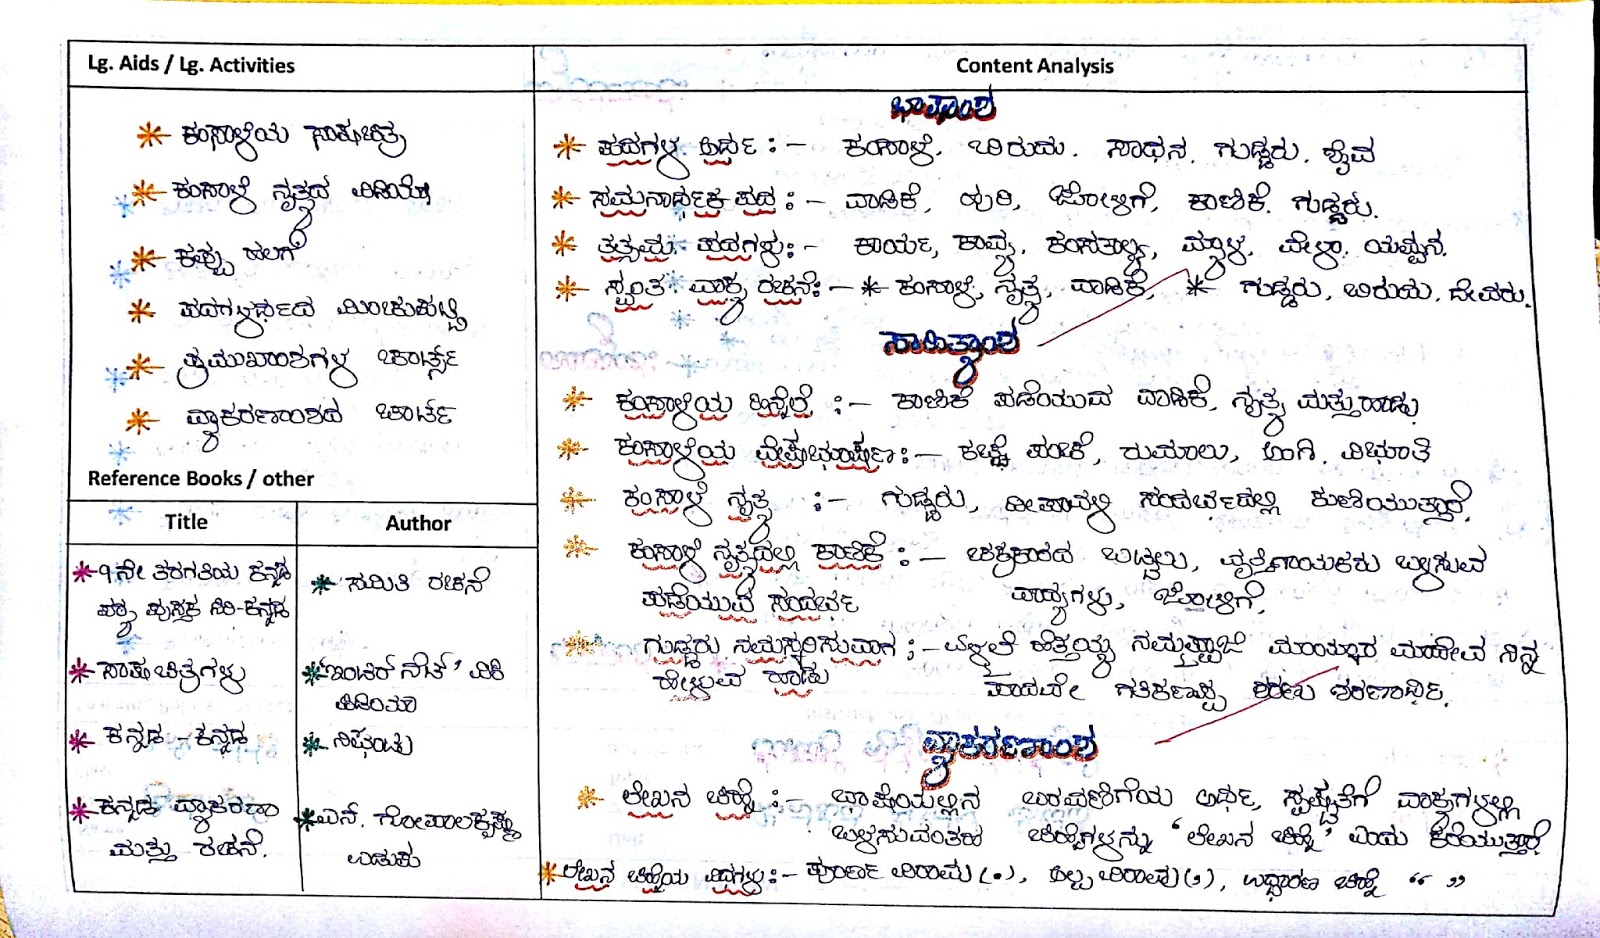 Lg. Aids / Lg. Activities
* ಕಂಸಾಳೆಯ ಸಾಷಚಿತ್ರ
* ಕಂಸಾಳೆ ನೃತ್ಯದ ವಿಡಿಯೋ
* ಕಪ್ಪು ಹಲಗೆ
* ಪದಗಳರ್ಥದ ಮಿಂಚುಪಟ್ಟಿ
* ಪ್ರಮುಖಾಂಶಗಳ ಚಾರ್ಟ್ಸ್
* ವ್ಯಾಕರಣಾಂಶದ ಚಾರ್ಟ್
Reference Books / other
Title
Author
* ೯ನೇ ತರಗತಿಯ ಕನ್ನಡ
ಪಠ್ಯ ಪುಸ್ತಕ ಸಿರಿ-ಕನ್ನಡ
* ಸಮಿತಿ ರಚನೆ
* ಸಾಷಚಿತ್ರಗಳು
* 'ಇಂಟರ್ ನೆಟ್' ವಿಕಿ
ಪಿಡಿಯಾ
* ಕನ್ನಡ - ಕನ್ನಡ
* ನಿಘಂಟು
* ಕನ್ನಡ ವ್ಯಾಕರಣ
ಮತ್ತು ರಚನೆ.
* ಎನ್. ಗೋಪಾಲಕೃಷ್ಣ
ಉಡುಪ
Content Analysis
ಭಾಷಾಂಶ
* ಪದಗಳ ಅರ್ಥ :- ಕಂಸಾಳೆ. ಬಿರುದು. ಸಾಧನ. ಗುಡ್ಡರು. ಶೈವ
* ಸಮನಾರ್ಥಕ ಪದ :- ವಾಡಿಕೆ, ಪುರಿ, ಜೋಳಿಗೆ, ಕಾಣಿಕೆ. ಗುಡ್ಡರು.
* ತತ್ಸಮ ಪದಗಳು:- ಕಾರ್ಯ, ಕಾವ್ಯ, ಕಂಸತಾಳ್ಯ, ಮ್ಯಾಳ, ವೇಳಾ,
* ಸ್ವಂತ ವಾಕ್ಯ ರಚನೆ:- * ಕಂಸಾಳೆ, ನೃತ್ಯ, ವಾಡಿಕೆ, * ಗುಡ್ಡರು, ಬಿರುದು. ದೇವರು.
ಸಾಹಿತ್ಯಾಂಶ
* ಕಂಸಾಳೆಯ ಹಿನ್ನೆಲೆ :- ಕಾಣಿಕೆ ಪಡೆಯುವ ವಾಡಿಕೆ, ನೃತ್ಯ ಮತ್ತು ಹಾಡು
* ಕಂಸಾಳೆಯ ವೇಷಭೂಷಣ:- ಕಚ್ಚೆ ಪಂಚೆ, ರುಮಾಲು, ಅಂಗಿ. ವಿಭೂತಿ
* ಕಂಸಾಳೆ ನೃತ್ಯ :- ಗುಡ್ಡರು, ದೀಪಾವಳಿ ಸಂದರ್ಭದಲ್ಲಿ ಕುಣಿಯುತ್ತಾರೆ.
* ಕಂಸಾಳೆ ನೃತ್ಯದಲ್ಲಿ ಕಾಣಿಕೆ :- ಚಕ್ರಾಕಾರದ ಬಟ್ಟಲು, ವೃತ್ತಿಗಾಯಕರು ಬಳಸುವ
ಪಡೆಯುವ ಸಂದರ್ಭ ವಾದ್ಯಗಳು, ಜೋಳಿಗೆ.
* ಗುಡ್ಡರು ನಮಸ್ಕರಿಸುವಾಗ :-
ಹೇಳುವ ಹಾಡು ಮಾದೇವ ನಿನ್ನ
ಪಾದವೇ ಗತಿಕಣಪ್ಪ ಶರಣು ಶರಣಾರ್ಥಿ.
ವ್ಯಾಕರಣಾಂಶ
* ಲೇಖನ ಚಿಹ್ನೆ :- ಭಾಷೆಯಲ್ಲಿನ ಬರವಣಿಗೆಯ ಅರ್ಥ, ಸ್ಪಷ್ಟತೆಗೆ ವಾಕ್ಯಗಳಲ್ಲಿ
ಬಳಸುವಂತಹ ಚಿಹ್ನೆಗಳನ್ನು 'ಲೇಖನ ಚಿಹ್ನೆ' ಎಂದು ಕರೆಯುತ್ತಾರೆ.
* ಲೇಖನ ಚಿಹ್ನೆಯ ವಿಧಗಳು:- ಪೂರ್ಣ ವಿರಾಮ (.), ಅಲ್ಪ ವಿರಾಮ (,), ಉದ್ಧರಣ ಚಿಹ್ನೆ “ ”